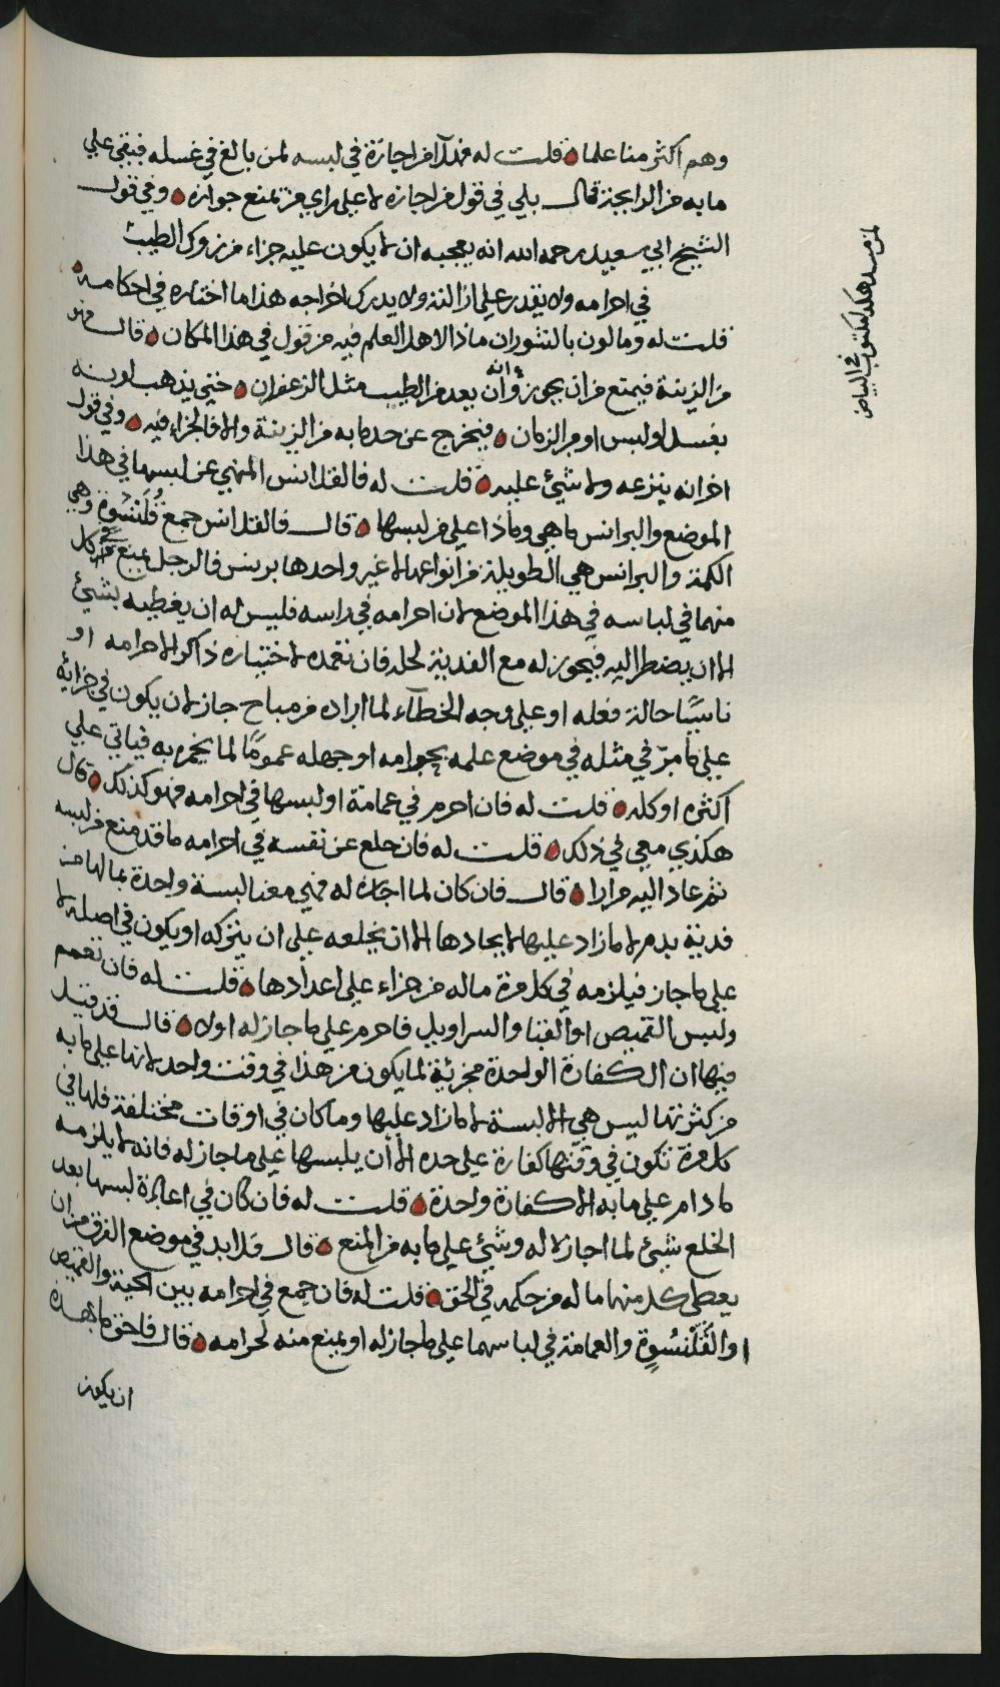 وهم اكثر منا علما قلت له فهذا من اجازة في لبسه لمن بالغ في غسله فبقي علي
ما به من الرايحة قال بلي في قول من اجازه لا علي راي من تمنع جوازه وفي قول
الشيخ ابي سعيد رحمه الله انه يعجبه ان لا يكون عليه جزاء من زوك الطيب
في احرامه ولا يقدر علي ازالته ولا يدرك اخراجه هذا ما اختاره في احكامه
قلت له وما لون بالشوران ماذا لاهل العلم فيه من قول في هذا المكان قال فهو
من الزينة فيمنع من ان يجوز وانه ان يعد من الطيب مثل الزعفران حتي يذهب لونه
بغسل او لبس او مر الزمان فيخرج عن حد ما به من الزينة والا فالجزاء فيه وفي قول
اخر انه ينزعه ولا شيئ عليه قلت له فالقلانس المنهي عن لبسها في هذا
الموضع والبرانس ما هي وماذا علي من لبسها قال فالقلانس جمع قُلَنْسُوة وهي
الكمة والبرانس هي الطويلة من انواعها لا غير واحدها برنس فالرجل يمنع من كل
منهما في لباسه في هذا الموضع لان احرامه في راسه فليس له ان يغطيه بشيئ
الا ان يضطر اليه فيجوز له مع الفدية لحله فان تعمده لاختياره ذاكرا لاحرامه او
ناسيًا حالة فعله او علي وجه الخطآء لما اراده من مباح جاز لان يكون في جزايه
علي ما مرّ في مثله في موضع علمه بحرامه او جهله عمومًا لما يخمر به فياتي علي
اكثره او كله قلت له فان احرم في عمامة او لبسها في احرامه فهو كذلك قال
هكذي معي في ذلك قلت له فان خلع عن نفسه في احرامه ما قد منع من لبسه
ثم عاد اليه مرارا قال فان كان لما اجازه له فهي معنا لبسة واحدة بما لها من
فدية بدم لا ما زاد عليها لايجادها الا ان يخلعه علي ان يتركه او يكون في اصله لا
علي ما جاز فيلزمه في كل مرة ماله من جزاء علي اعدادها قلت له فان تعمم
ولبس القميص او القبا والسراويل فاحرم علي ما جاز له اولا قال قد قيل
فيها ان الكفارة الواحدة مجزئية لما يكون من هذا في وقت واحد لانها علي ما به
من كثرتها ليس هي الا لبسة لا ما زاد عليها وما كان في اوقات مختلفة فلها في
كل مرة تكون في وقتها كفارة علي حده الا أن يلبسها علي ما جاز له فانه لا يلزمه
ما دام علي ما به الا كفارة واحدة قلت له فان كان في اعادة لبسها بعد
الخلع شيئ لما اجازه له وشيئ علي ما به من المنع قال فلا بد في موضع الفرق من ان
يعطي كل منهما ما له من حكم في الحق قلت له فان جمع في احرامه بين الجبة والقميص
او القَلَنْسُوةِ والعمامة في لباسهما علي ما جاز له او يمنع منه لحرامه قال فاحق ما بهذه
ان يكون
هكذا مكتوب في البياض